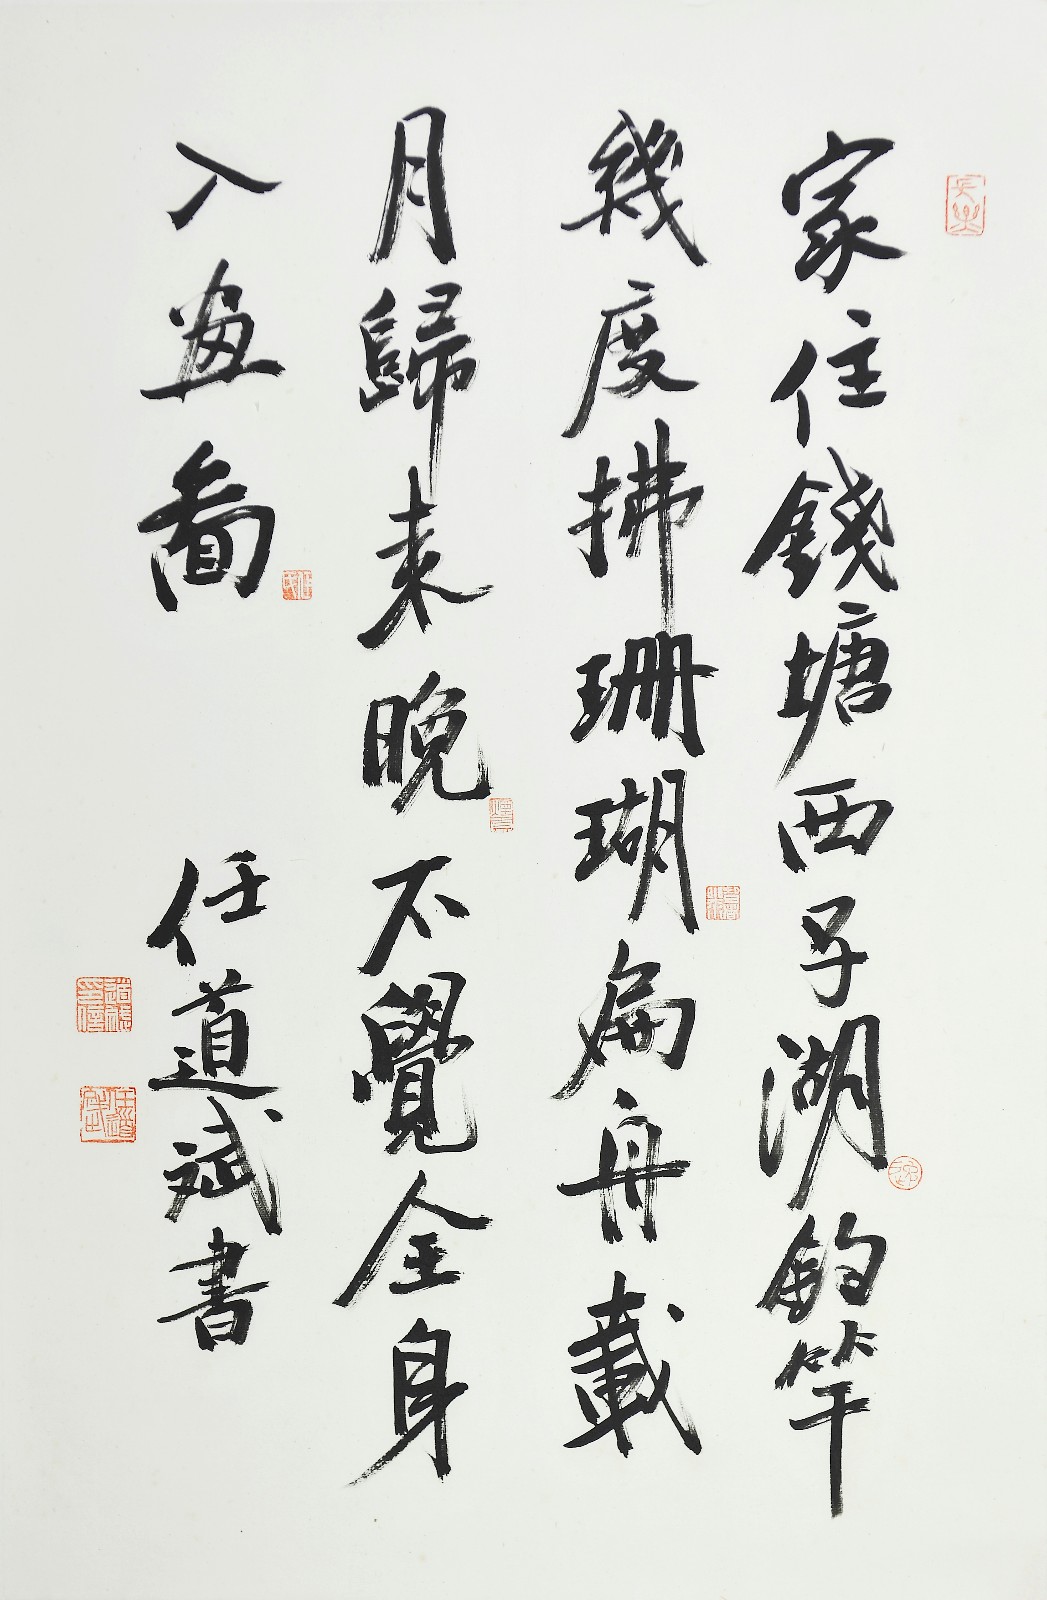 家住錢塘西子湖釣竿
幾度拂珊瑚扁舟載
月歸來晚不覺全身
入畫啚
任道斌書